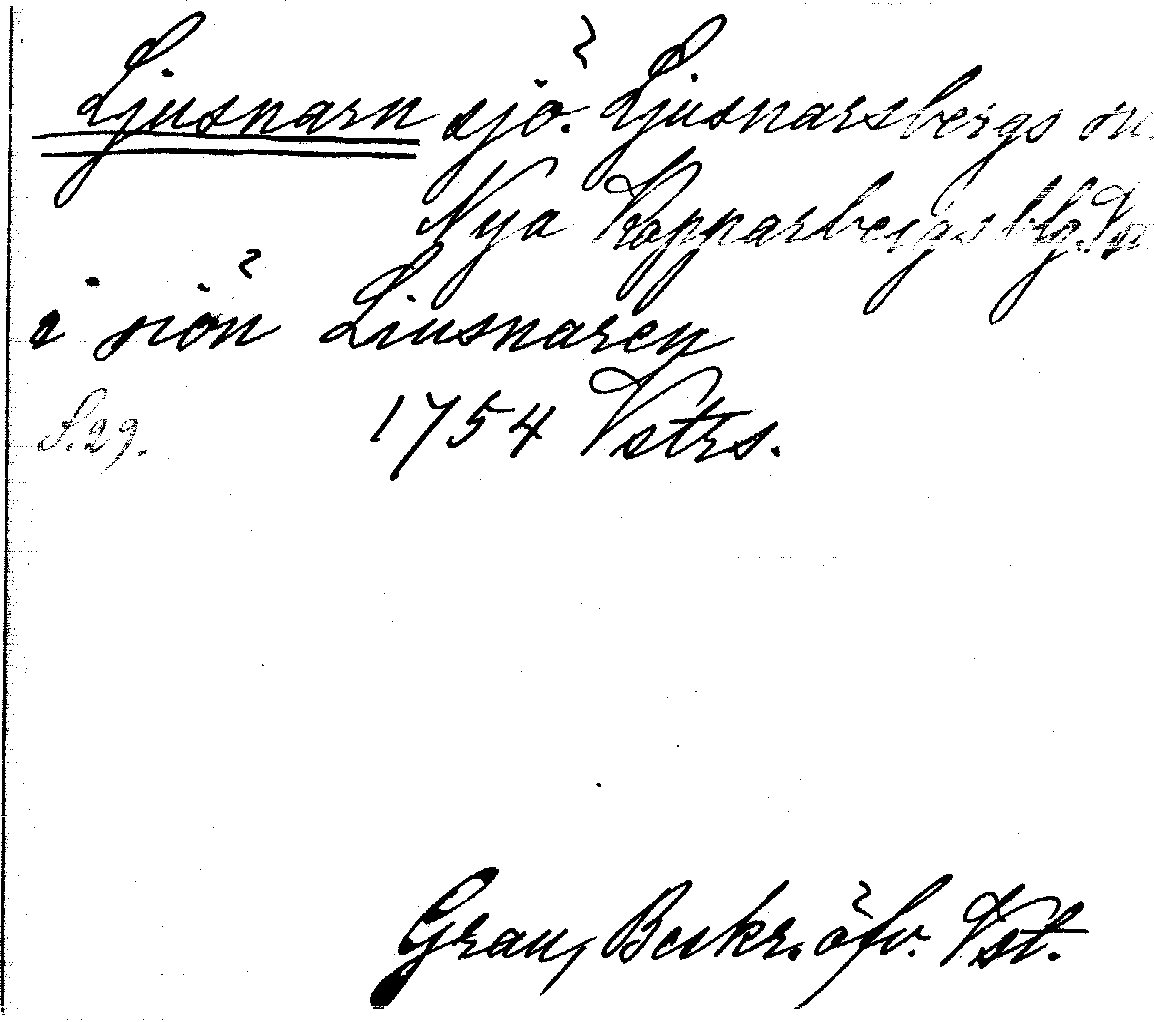 Ljusnarn sjö. Ljusnarsbergs sn.
Nya Kopparbergs blg.
i siön Liusnaren
S. 29. 1754 Vstrs.
Grau, Beskr. öfv. Vst.